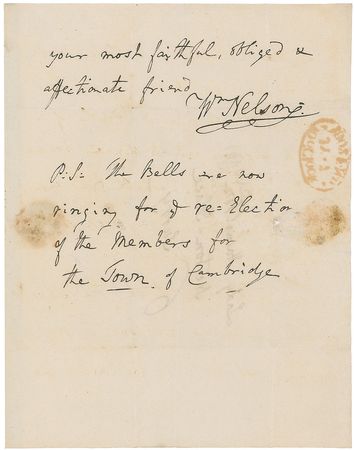 your most faithful, obliged &
affectionate friend
Wm Nelson:
P:S: The Bells are now
ringing for ye re=Election
of the Members for
the Town of Cambridge